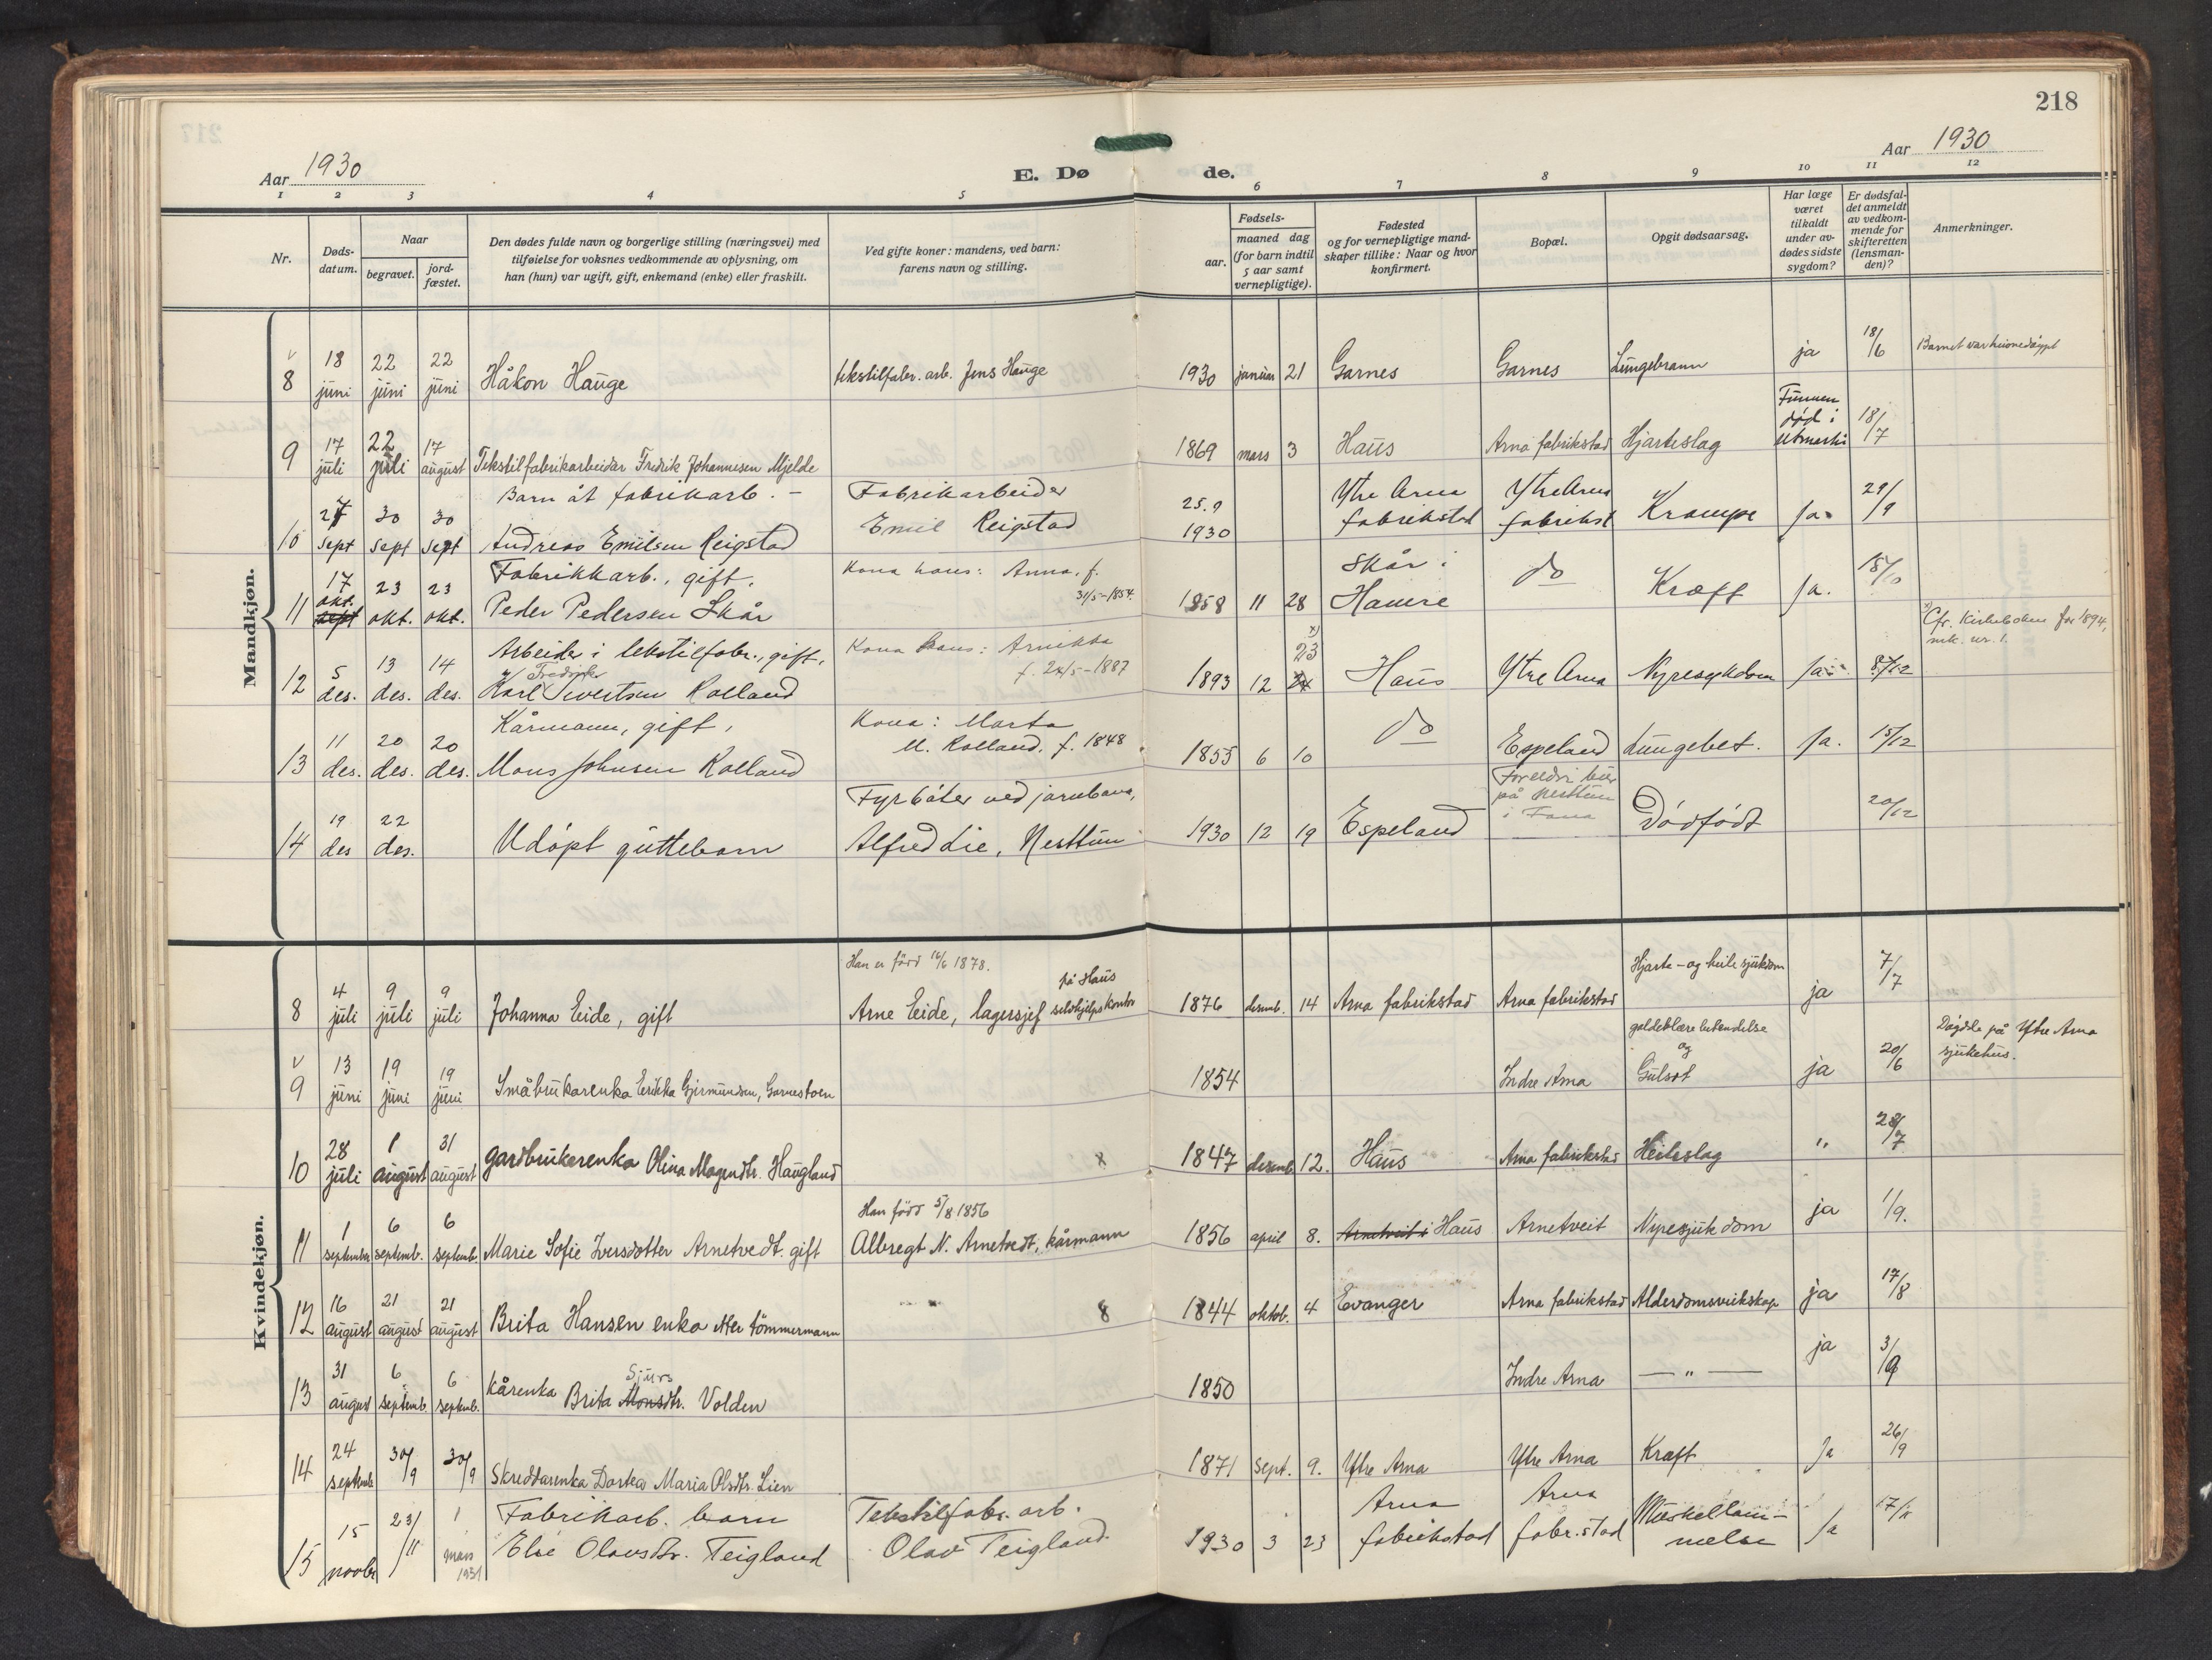 218
Aar 1930
E. Døde.
Aar 1930
1 2 3 4 5 6 7 8 9 10 11 12
Nr.
Dødsdatum.
Naar
begravet.
jordfæstet.
Den dødes fulde navn og borgerlige stilling (næringsvei) med
tilføielse for voksnes vedkommende av oplysning, om
han (hun) var ugift, gift, enkemand (enke) eller fraskilt.
Ved gifte koner: mandens, ved barn:
farens navn og stilling.
Fødsels-
aar.
maaned dag
(for barn indtil
5 aar samt
vernepligtige).
Fødested
og for vernepligtige mand-
skaper tillike: Naar og hvor
konfirmert.
Bopæl.
Opgit dødsaarsag.
Har læge
været
tilkaldt
under av-
dødes sidste
sygdom?
Er dødsfal-
det anmeldt
av vedkom-
mende for
skifteretten
(lensman-
den)?
Anmerkninger.
Mandkjøn.
8 18 juni 22 juni 22 juni Håkon Hauge tekstilfabr. arb. Jens Hauge 1930 januar 21 Garnes Garnes Lungebrann ja 18/6 Barnet var heimedøypt
9 17 juli 22 juli 17 august Tekstilfabrikarbeidar Fredrik Johannesen Mjelde 1869 mars 3 Haus Arna fabrikstad Hjarteslag Funnen død i utmarki 18/7
10 27 sept 30 sept 30 sept Barn åt fabrikarb. - Andreas Emilsen Reigstad Fabrikarbeider Emil Reigstad 25.9 1930 Ytre Arna fabrikstad Ytre Arna fabrikst Krampe Ja 29/9
11 17 okt. sept 23 okt. 23 okt. Fabrikkarb., gift. Peder Pedersen Skår Kona hans: Anna, f. 31/5-1854. 1858 11 28 Skår i Hamre do Kræft Ja. 18/10
12 5 des. 13 des. 14 des. Arbeider i tekstilfabr., gift, Karl Fredrik Sivertsen Rolland Kona hans: f. 24/5-1887 1893 12 x) 23 24 Haus Ytre Arna Nyresykdom Ja 8/12 x) Cfr. Kirkeboken for 1894, mk. nr. 1.
13 11 des. 20 des. 20 des. Kårmann, gift, Mons Johnsen Rolland Kona: Marta M. Rolland, f. 1848 1855 6 10 do Espeland Lungebet. Ja. 15/12
14 19 des 22 des. Udøpt guttebarn Fyrbøter ved jarnbana, Alfred Lie, Nesttun 1930 12 19 Espeland Foreldri bur på Nesttun i Fana Dødfødt 20/12
Kvindekjøn.
8 4 juli 9 juli 9 juli Johanna Eide, gift Han er född 16/6 1878. Arne Eide, lagersjef på Haus selvhjelpskontor 1876 desemb. 14 Arna fabrikstad Arna fabrikstad Hjarte- og heilesjukdom ja 7/7
9 13 juni 19 juni 19 juni Småbrukarenka Erikka Gjermundsen, Garnestoen 1854 Indre Arna galdeblærebetendelse og Gulsot ja 20/6 Døydde på Ytre Arna sjukehus.
10 28 juli 1 august 31 august gardbrukerenka Olina Magnedtr. Haugland 1847 desemb. 12. Haus Arna fabrikstad Heileslag " 28/7
11 1 september 6 septemb. 6 septemb. Marie Sofie Iversdotter Arnetvedt. gift Han född 5/8 1856 Albregt N. Arnetvedt, kårmann 1856 april 8. Arnetveit i Haus Arnetveit Nyresjukdom ja 1/9.
12 16 august 21 august 21 august Brita Hansen enka etter tömmermann 8 1844 oktob. 4 Evanger Arna fabrikstad Alderdomsveikskap ja 17/8
13 31 august 6 septemb. 6 septemb. kårenka Brita Sjurs Monsdtr. Volden 1850 Indre Arna — " — ja 3/9
14 24 septemb. 30/9 30/9 Skreddarenka Dortea Maria Olsdtr. Lien 1871 Sept. 9. Ytre Arna Ytre Arna Kræft Ja 26/9
15 15 novbr 23/11 1 mars 1931 Fabrikarb. barn Else Olavsdtr. Teigland Tekstilfabr. arb. Olav Teigland. 1930 3 23 Arna fabrikstad Arna fabr.stad Muskellammelse Ja 17/11